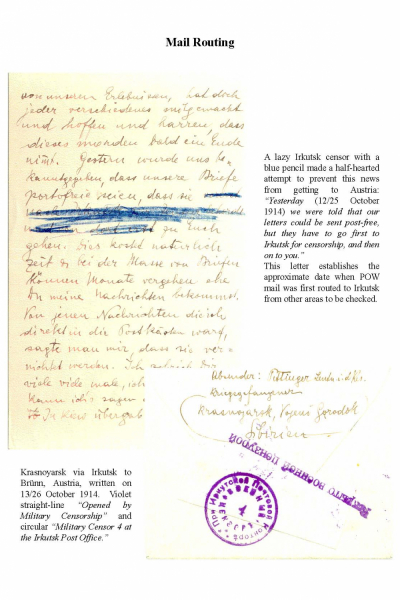 Mail Routing
von unseren Erlebnissen, hat doch
jeder verschiedenes mitgemacht
und hoffen und harren, dass
dieses morden bald ein Ende
nimt. Gestern wurde uns be-
kanntgegeben dass unsere Briefe
portofrei seien, dass sie
zu Euch
gehen. Dies kostet natürlich
Zeit & bei der Masse von Briefen
können Monate vergehen ehe
Du meine Nachrichten bekommst.
Von jenen Nachrichten die ich
direkt in die Postkästen warf,
sagte man mir, dass sie ver-
nichtet werden. Ich
viele viele mal, ich
kann
A lazy Irkutsk censor with a
blue pencil made a half-hearted
attempt to prevent this news
from getting to Austria:
“Yesterday (12/25 October
1914) we were told that our
letters could be sent post-free,
but they have to go first to
Irkutsk for censorship, and then
on to you.”
This letter establishes the
approximate date when POW
mail was first routed to Irkutsk
from other areas to be checked.
Absender:
Kriegsgefangener
Krasnoyarsk, Vojeni Gorodok
Sibirien
Вскрыто военной цензурой
При Иркутской Почтовой Конторе
Военный Цензор
4
Krasnoyarsk via Irkutsk to
Brünn, Austria, written on
13/26 October 1914. Violet
straight-line “Opened by
Military Censorship” and
circular “Military Censor 4 at
the Irkutsk Post Office.”